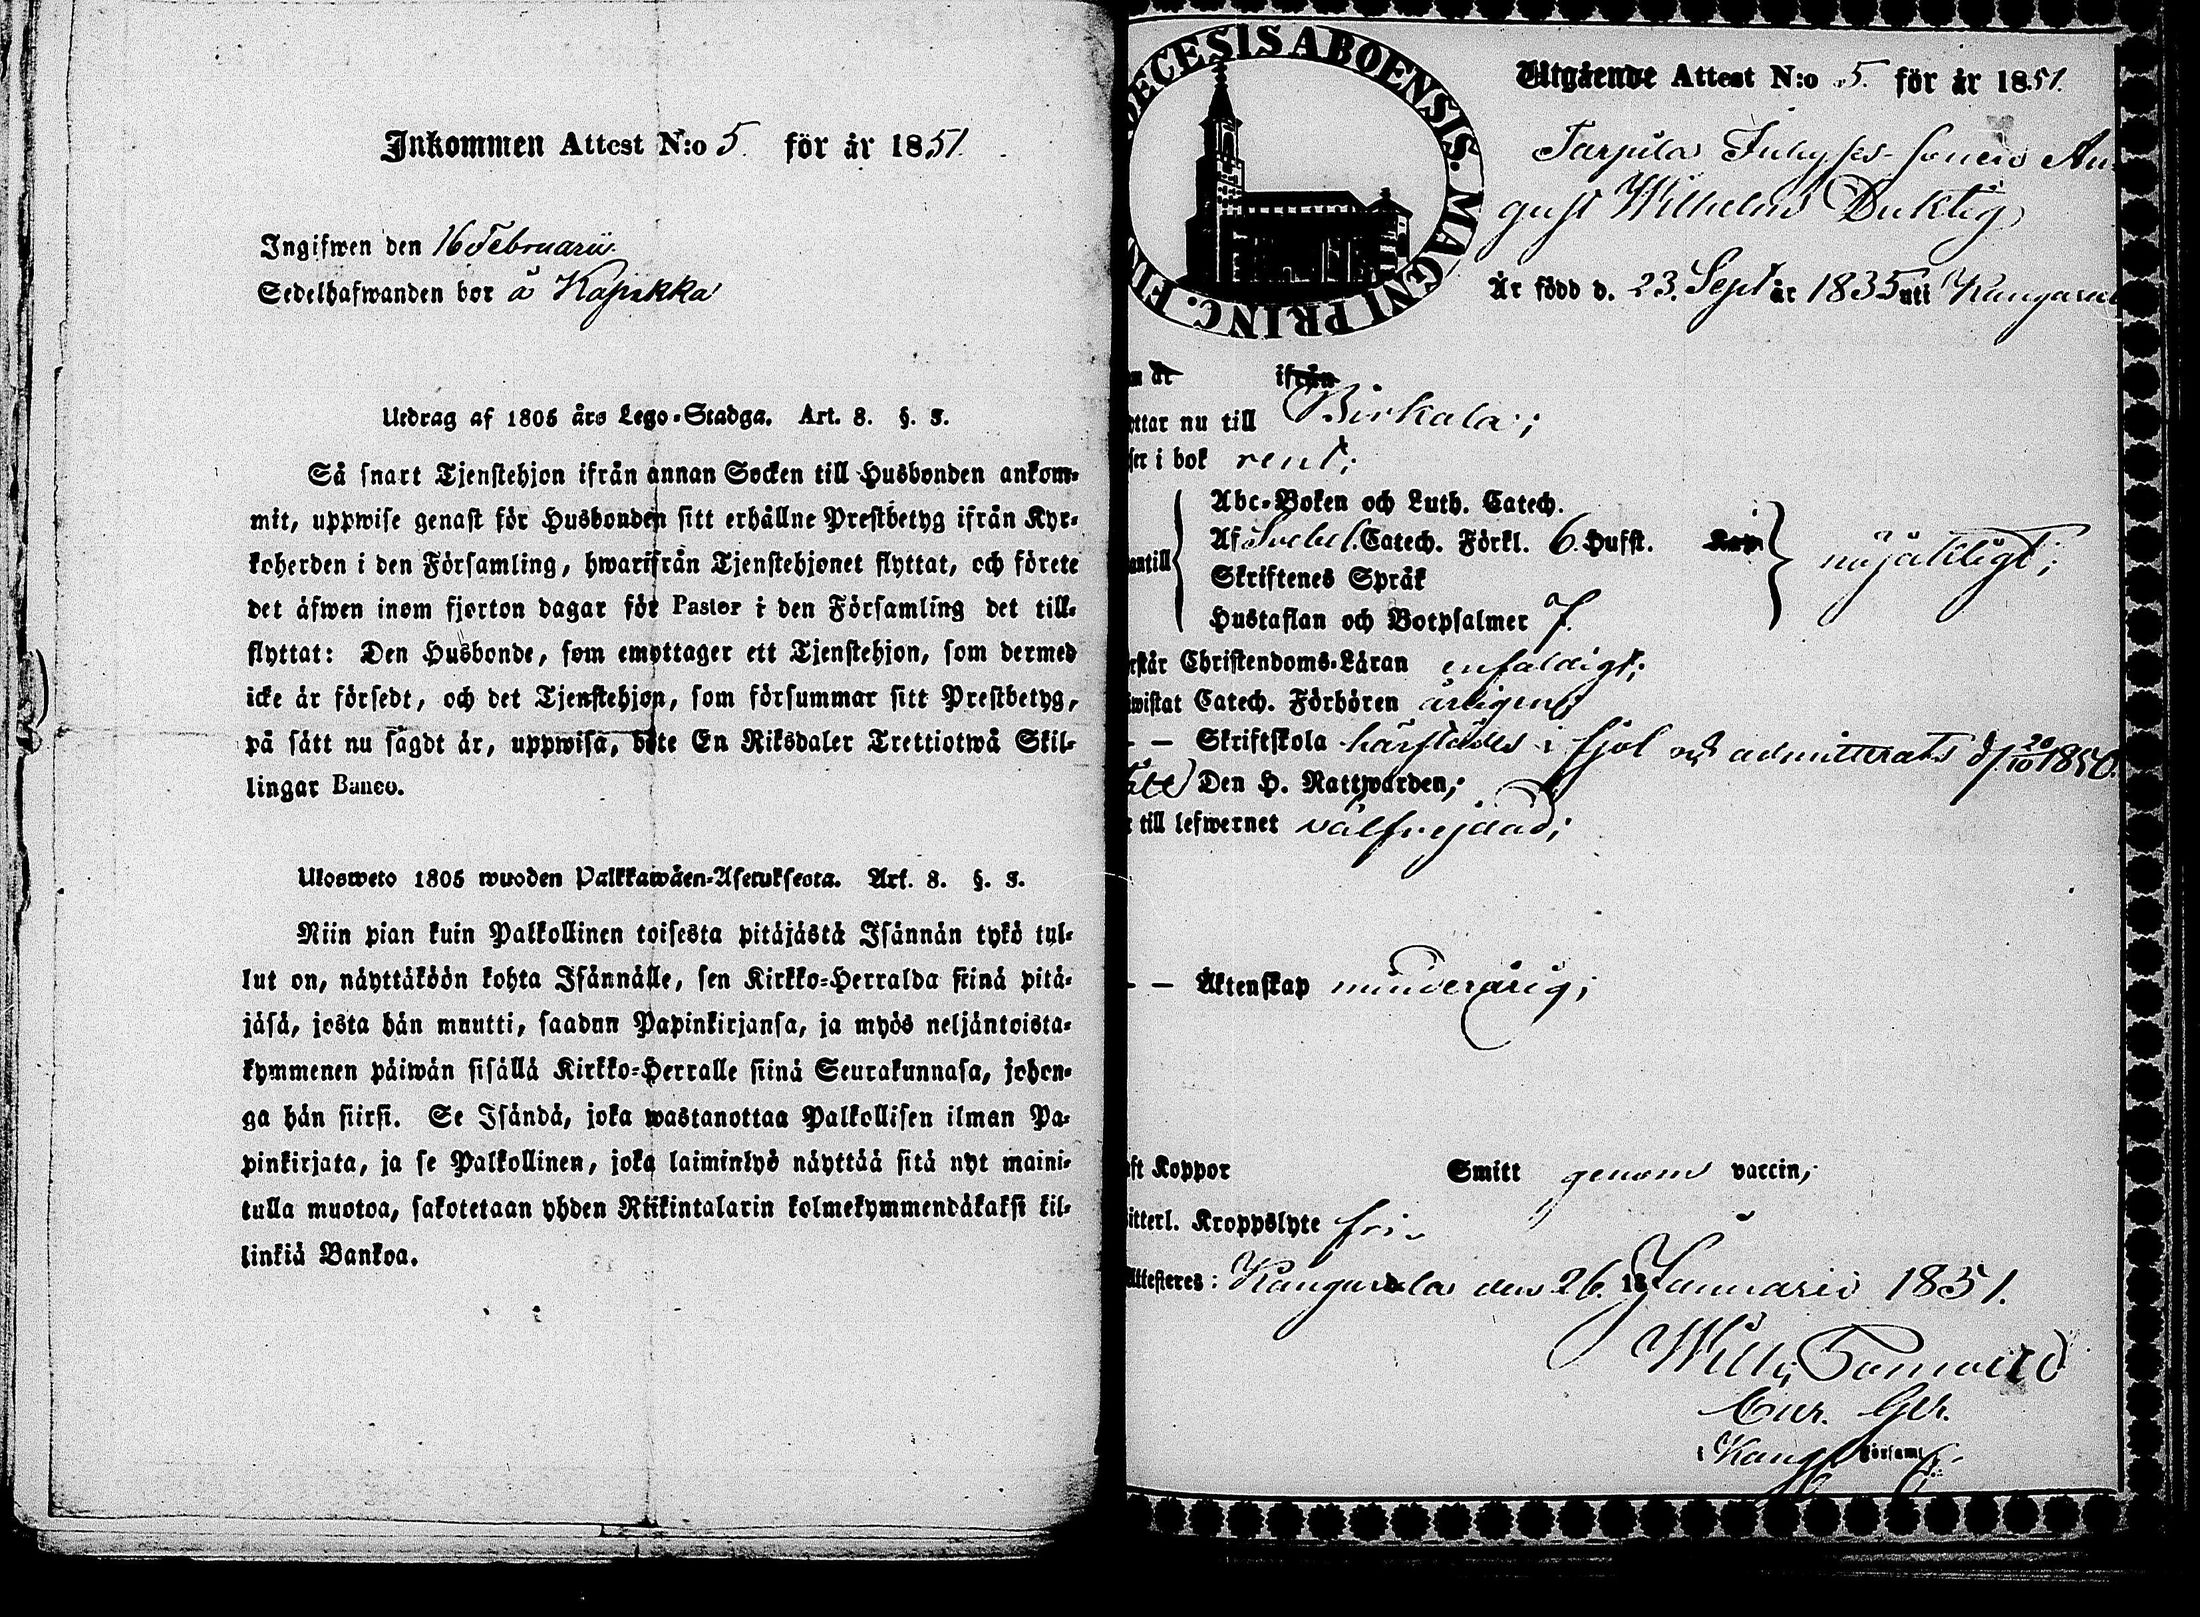 Inkommen Attest N:o 5. för år 1851.
Ingifwen den 16 Februarii.
Sedelhafwanden bor å Kapakka
Utdrag af 1805 års Lego-Stadga. Art. 8. §. 3.
Så snart Tjenstehjon ifrån annan Socken till Husbonden ankom-
mit, uppwise genast för Husbonden sitt erhållne Prestbetyg ifrån Kyr-
koherden i den Församling, hwarifrån Tjenstehjonet flyttat, och förete
det äfwen inom fjorton dagar för Pastor i den Församling det till-
flyttat: Den Husbonde, som emottager ett Tjenstehjon, som dermed
icke är försedt, och det Tjenstehjon, som försummar sitt Prestbetyg,
på sätt nu sagdt är, uppwisa, böte En Riksdaler Trettiotwå Skil-
lingar Banco.
Ulosweto 1805 wuoden Palkkawäen-Asetuksesta. Art. 8. §. 3.
Niin pian kuin Palkollinen toisesta pitäjästä Isännän tykö tul-
lut on, näyttäköön kohta Isännälle, sen Kirkko-Herralda siinä pitä-
jäsä, josta hän muutti, saadun Papinkirjansa, ja myös neljäntoista-
kymmenen päiwän sisällä Kirkko-Herralle siinä Seurakunnasa, johon-
ga hän siirsi. Se Isändä, joka wastanottaa Palkollisen ilman Pa-
pinkirjata, ja se Palkollinen, joka laiminlyö näyttää sitä nyt maini-
tulla muotoa, sakotetaan yhden Riikintalarin kolmekymmendäkaksi kil-
linkiä Bankoa.
ECESIS ABOENSIS. MAGNI PRINC. FIN
Utgående Attest N:o 5. för år 1851.
Tarpila Au-
gust Wilhelm Duktig
Är född d. 23. Sept år 1835 uti Kangasal
är ifrån
ttar nu till Birkala;
ser i bok rent;
Abc-Boken och Luth. Catech.
Af Svebel. Catech. Förkl. 6. Hufst.
antill Skriftenes Språk
Hustaflan och Botpsalmer 7.
nöjaktligt;
rstår Christendoms-Läran enfaldigt;
iwistat Catech. Förhören årligen;
– – Skriftskola härstädes i fjol och admitterats d. 20/10 1850.
Den H. Nattwarden;
till lefwernet välfrejdad;
– – Äktenskap minderårig;
ft Koppor Smitt genom vaccin;
itterl. Kroppslyte fri.
Attesteres: Kangasala den 26. 18 Januarii 1851.
Wilh.
Cur. Ger.
i Kang församl.